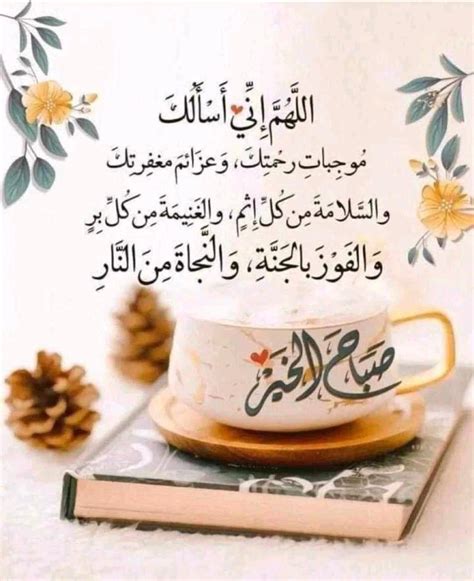 اللَّهُمَّ إِنِّي أَسْأَلُكَ
مُوجِباتِ رَحْمَتِكَ، وَعَزَائمَ مغفِرتِكَ
والسَّلامَةَ مِن كُلِّ إثمٍ، والغَنِيمَةَ مِن كُلِّ بِرٍ
وَالفَوْزَ بالجَنَّةِ، وَالنَّجاةَ مِنَ النَّارِ
صَبَاحَ الخَيْرِ